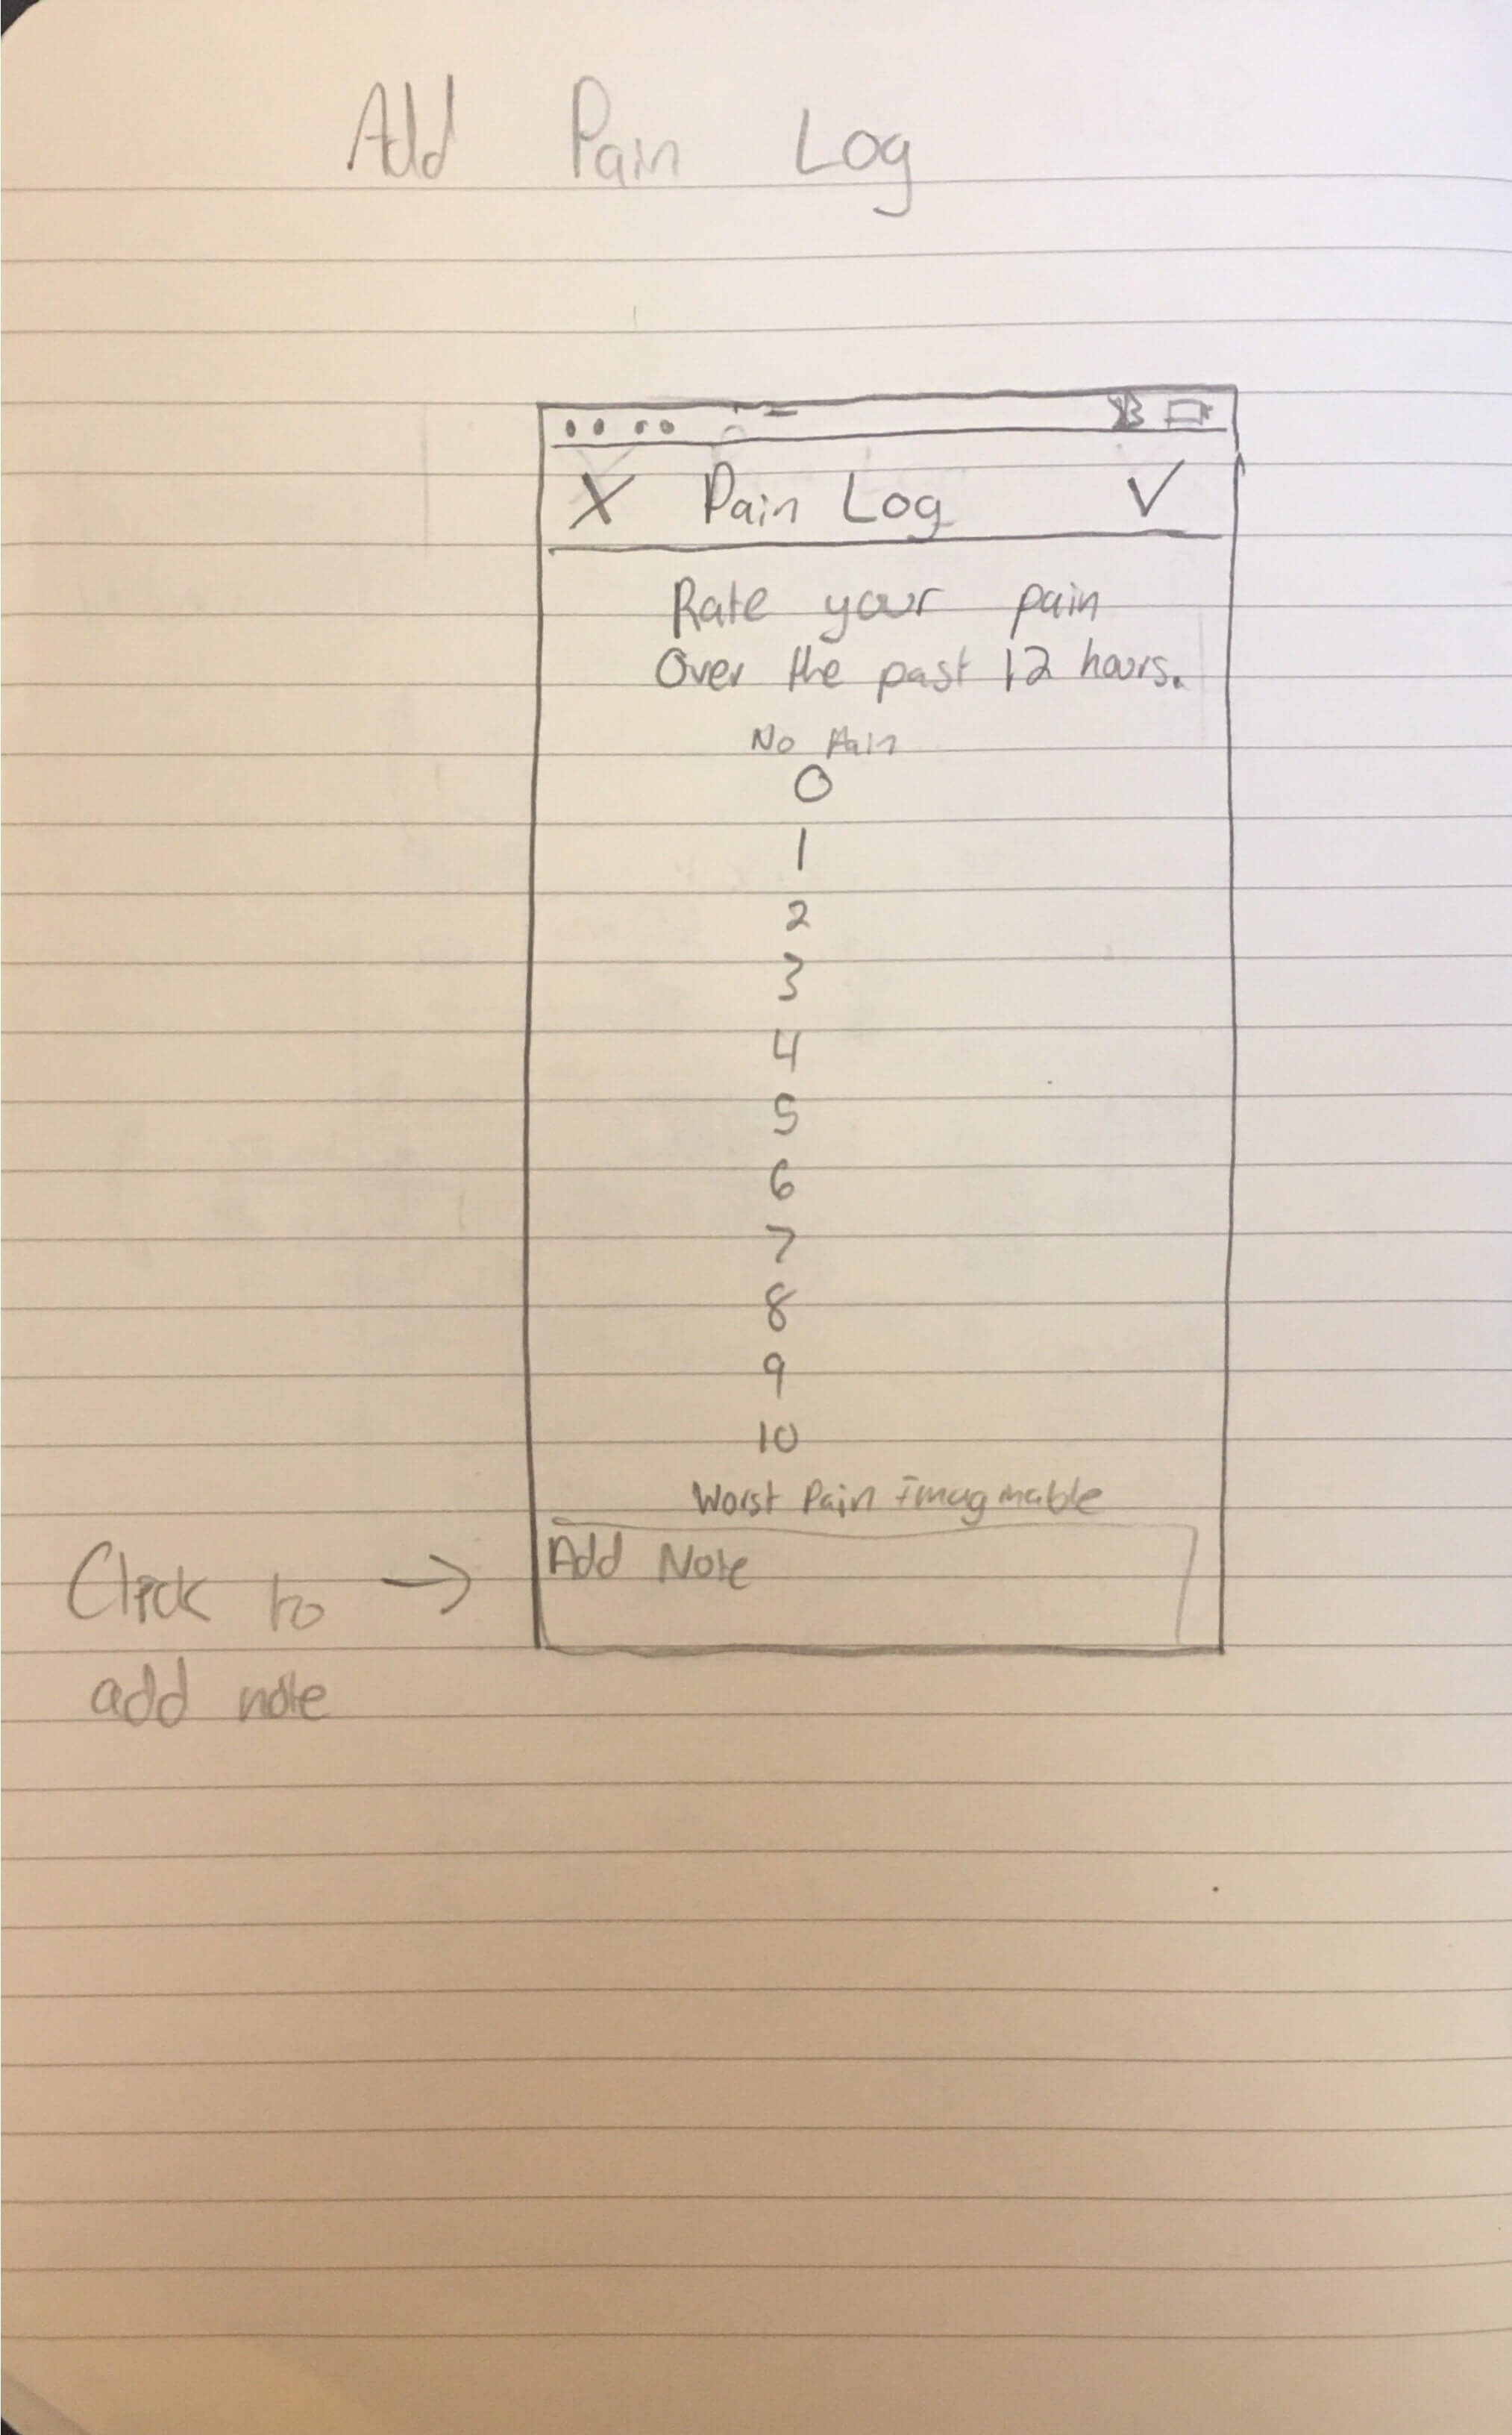 Add Pain Log
X Pain Log ✓
Rate your pain
Over the past 12 hours.
No Pain
0
1
2
3
4
5
6
7
8
9
10
Worst Pain imaginable
Add Note
Click to →
add note